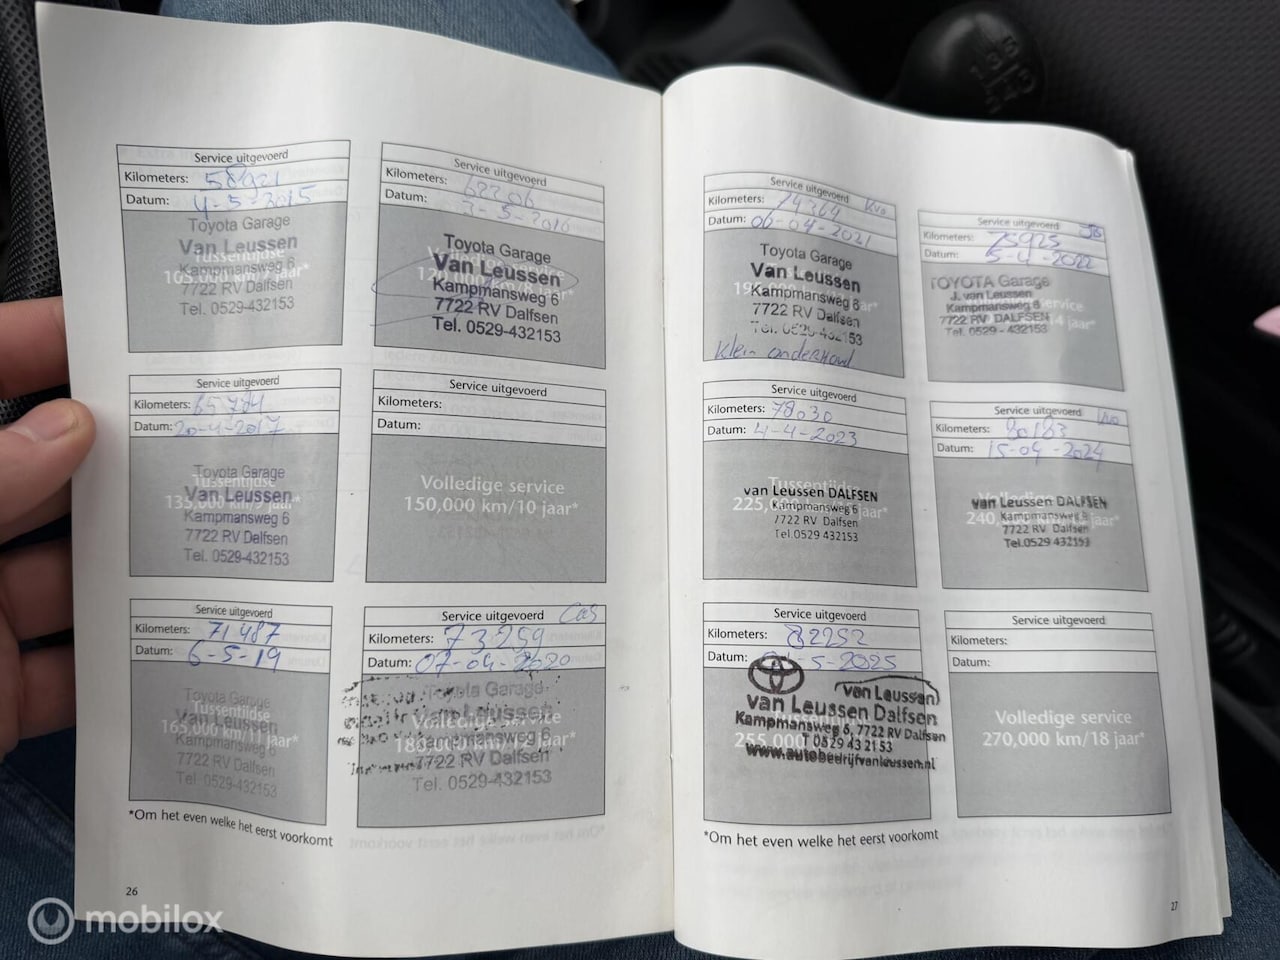 Service uitgevoerd
Kilometers: 58921
Datum: 4-5-2015
Toyota Garage
Van Leussen
Tussentijdse
Kampmansweg 6
105,000 km/7 jaar*
7722 RV Dalfsen
Tel. 0529-432153
Service uitgevoerd
Kilometers: 62206
Datum: 3-5-2016
Toyota Garage
Van Leussen
Volledige service
Kampmansweg 6
120,000 km/8 jaar*
7722 RV Dalfsen
Tel. 0529-432153
Service uitgevoerd
Kilometers: 65784
Datum: 20-4-2017
Toyota Garage
Tussentijdse
Van Leussen
135,000 km/9 jaar*
Kampmansweg 6
7722 RV Dalfsen
Tel. 0529-432153
Service uitgevoerd
Kilometers:
Datum:
Volledige service
150,000 km/10 jaar*
Service uitgevoerd
Kilometers: 71487
Datum: 6-5-19
Toyota Garage
Tussentijdse
Van Leussen
165,000 km/11 jaar*
Kampmansweg 6
7722 RV Dalfsen
Tel. 0529-432153
Service uitgevoerd
Kilometers: 73259
Datum: 07-04-2020
Toyota Garage
Van Leussen
Volledige service
Kampmansweg 6
180,000 km/12 jaar*
7722 RV Dalfsen
Tel. 0529-432153
*Om het even welke het eerst voorkomt
26
Service uitgevoerd
Kilometers: 74364 Kvo
Datum: 06-04-2021
Toyota Garage
Van Leussen
Kampmansweg 6
7722 RV Dalfsen
Tel. 0529-432153
Klein onderhoud
Service uitgevoerd
Kilometers: 75925
Datum: 5-4-2022
TOYOTA Garage
J. van Leussen
Kampmansweg 6
7722 RV DALFSEN
Tel. 0529 - 432153
Service uitgevoerd
Kilometers: 78030
Datum: 4-4-2023
Tussentijdse
van Leussen DALFSEN
225,000 km
Kampmansweg 6
7722 RV Dalfsen
Tel.0529 432153
Service uitgevoerd
Kilometers: 80183
Datum: 15-04-2024
van Leussen DALFSEN
Kampmansweg 6
7722 RV Dalfsen
Tel.0529 432153
Service uitgevoerd
Kilometers: 82252
Datum: -5-2025
van Leussen
van Leussen Dalfsen
Kampmansweg 6, 7722RV Dalfsen
255,000
T 0529 43 21 53
www.autobedrijfvanleussen.nl
Service uitgevoerd
Kilometers:
Datum:
Volledige service
270,000 km/18 jaar*
*Om het even welke het eerst voorkomt
27
mobilox